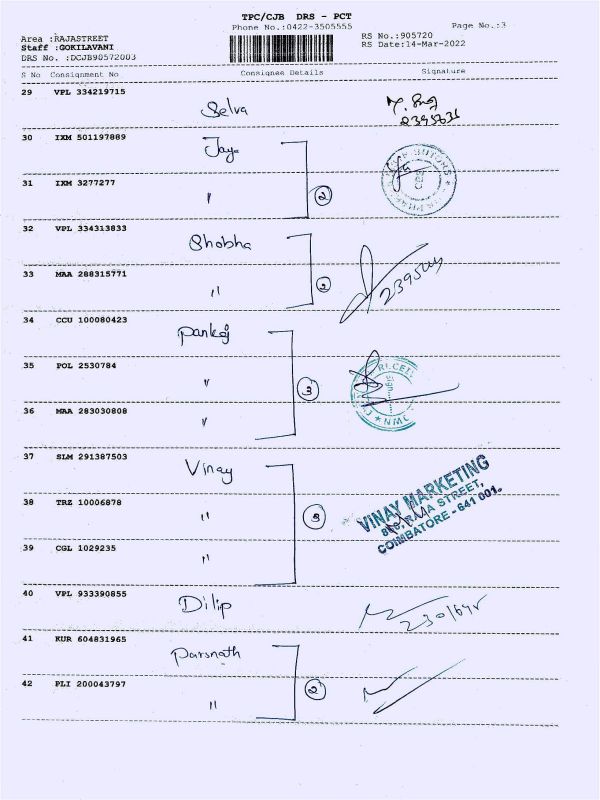 TPC/CJB DRS - PCT
Phone No.:0422-3505555
Page No.:3
Area :RAJASTREET
Staff :GOKILAVANI
DRS No. :DCJB90572003
RS No.:905720
RS Date:14-Mar-2022
S No Consignment No Consignee Details Signature
29 VPL 334219715
Selva
30 IXM 501197889
Jay
31 IXM 3277277
"
2
32 VPL 334313833
Shobha
33 MAA 288315771
"
2
34 CCU 100080423
Pankaj
35 POL 2530784
"
3
36 MAA 283030808
"
37 SLM 291387503
Vinay
38 TRZ 10006878
"
3
VINAY MARKETING
RAJA STREET,
COIMBATORE - 641 001.
39 CGL 1029235
"
40 VPL 933390855
Dilip
41 KUR 604831965
Parsnath
42 PLI 200043797
"
2